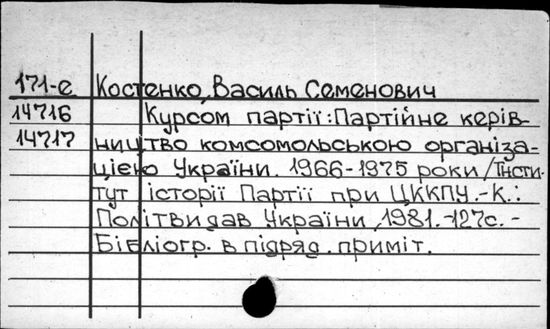 171-е Костенко, Василь Семенович
14716 Курсом партії: Партійне керів-
14717 ництво комсомольською організа-
цією України. 1966-1975 роки/Інсти-
тут історії Партії при ЦККПУ.-К.:
Політвидав України, 1981.-127с.-
Бібліогр. в підряд. приміт.